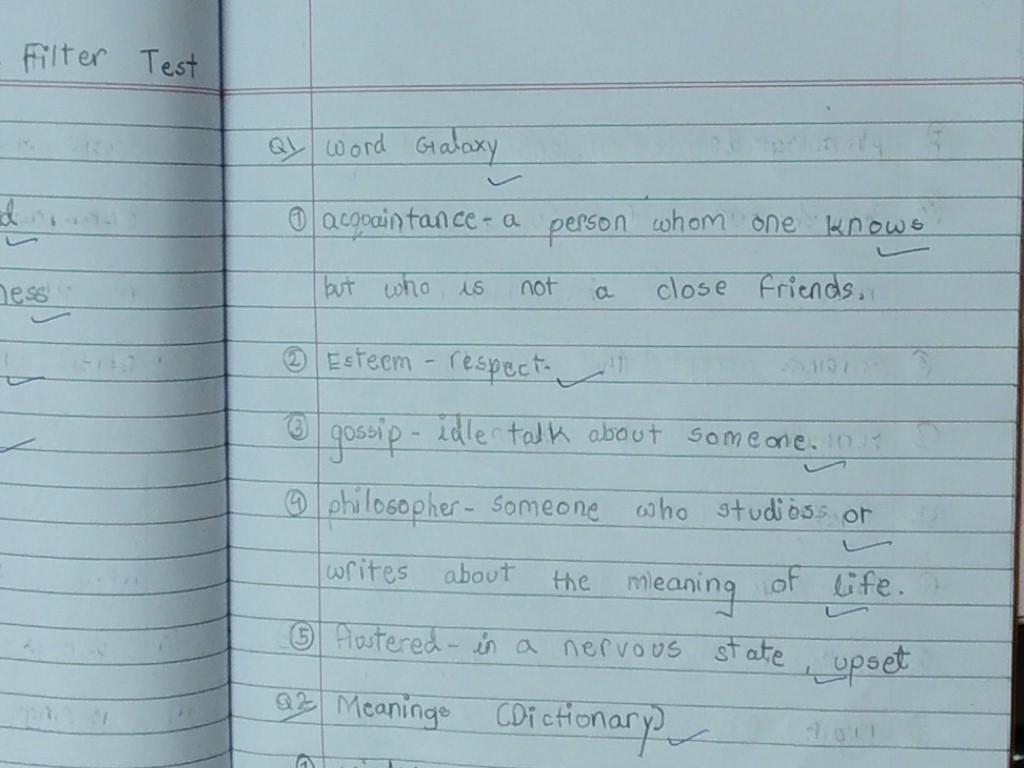 Filter Test
Q1 Word Galaxy
① acquaintance - a person whom one knows
but who is not a close friends.
② Esteem - respect.
③ gossip - idle talk about someone.
④ philosopher - someone who studioss or
writes about the meaning of life.
⑤ flustered - in a nervous state, upset
Q2 Meanings (Dictionary)
ness